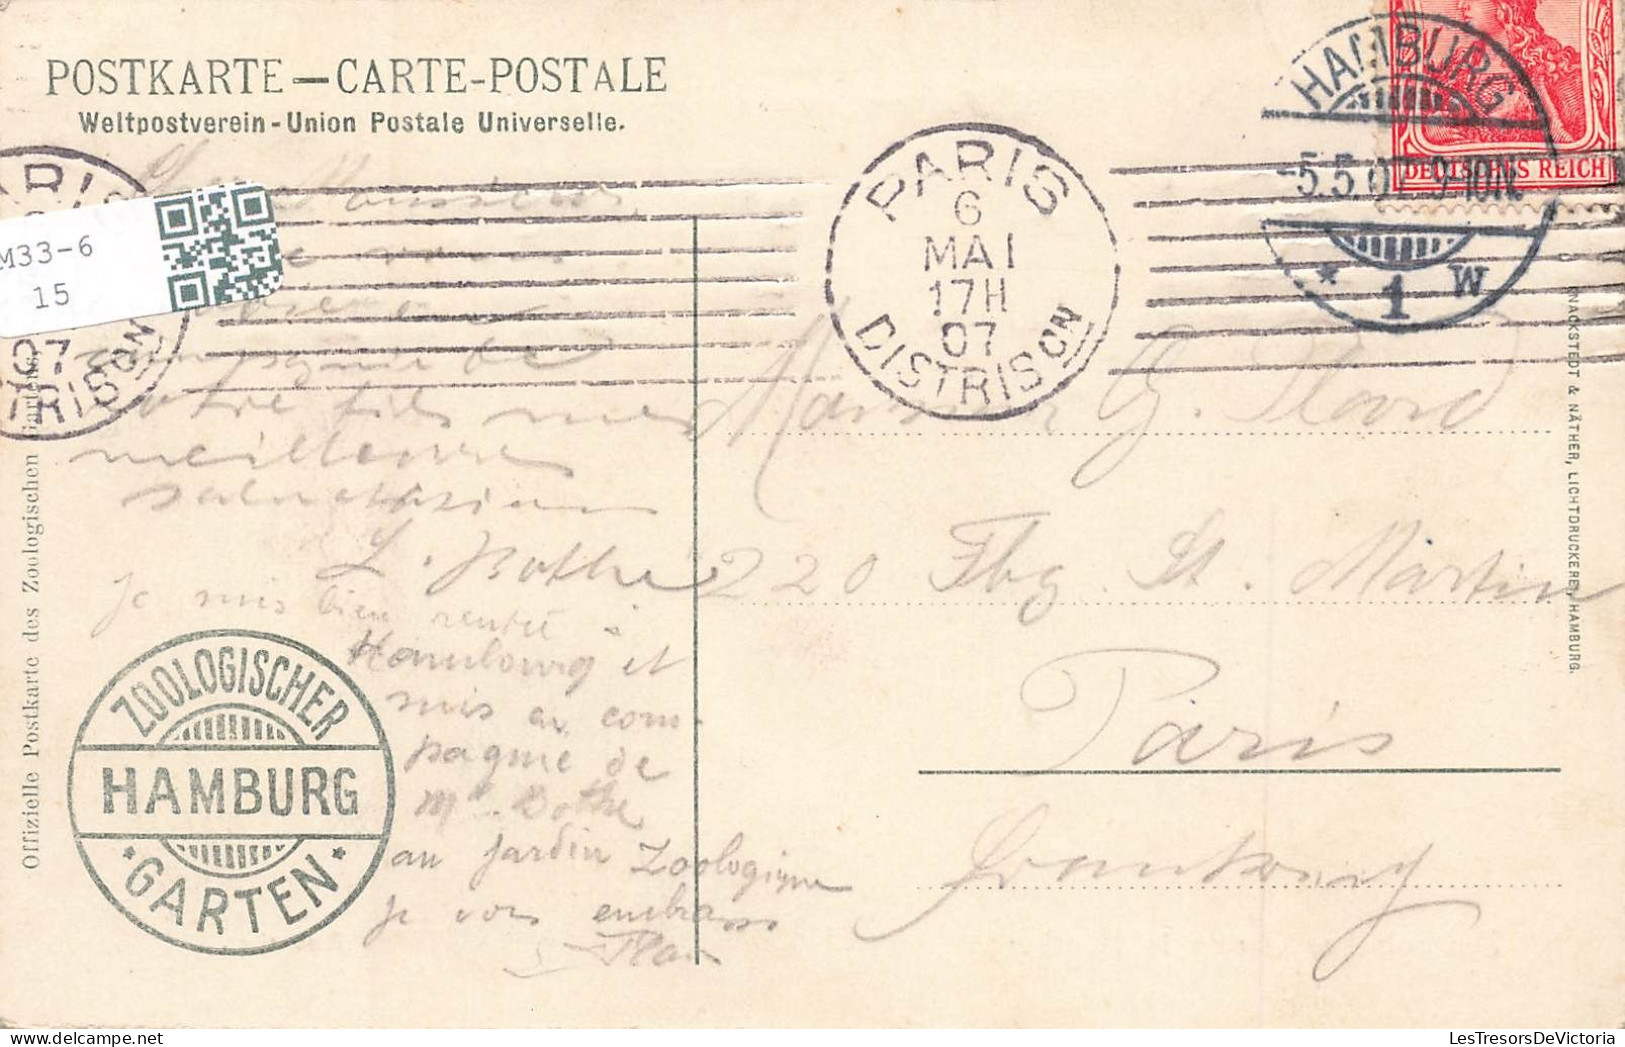 POSTKARTE — CARTE-POSTALE
Weltpostverein - Union Postale Universelle.
HAMBURG
5.5.07 9-10N.
* 1 W
DEUTSCHES REICH
PARIS
6
MAI
17H
07
DISTRISON
PARIS
07
DISTRISON
M33-6
15
Monsieur
vous
compagnie de
votre fils mes
meilleures
salutations
L. Bothe
Je suis bien rentré à
Hambourg et
suis en com-
pagnie de
Mr. Bothe
au jardin Zoologique
je vous embrasse
Monsieur G.
220 Fbg St. Martin
Paris
Offizielle Postkarte des Zoologischen Gartens.
ZOOLOGISCHER
HAMBURG
* GARTEN *
KNACKSTEDT & NÄTHER, LICHTDRUCKEREI, HAMBURG.
LesTresorsDeVictoria